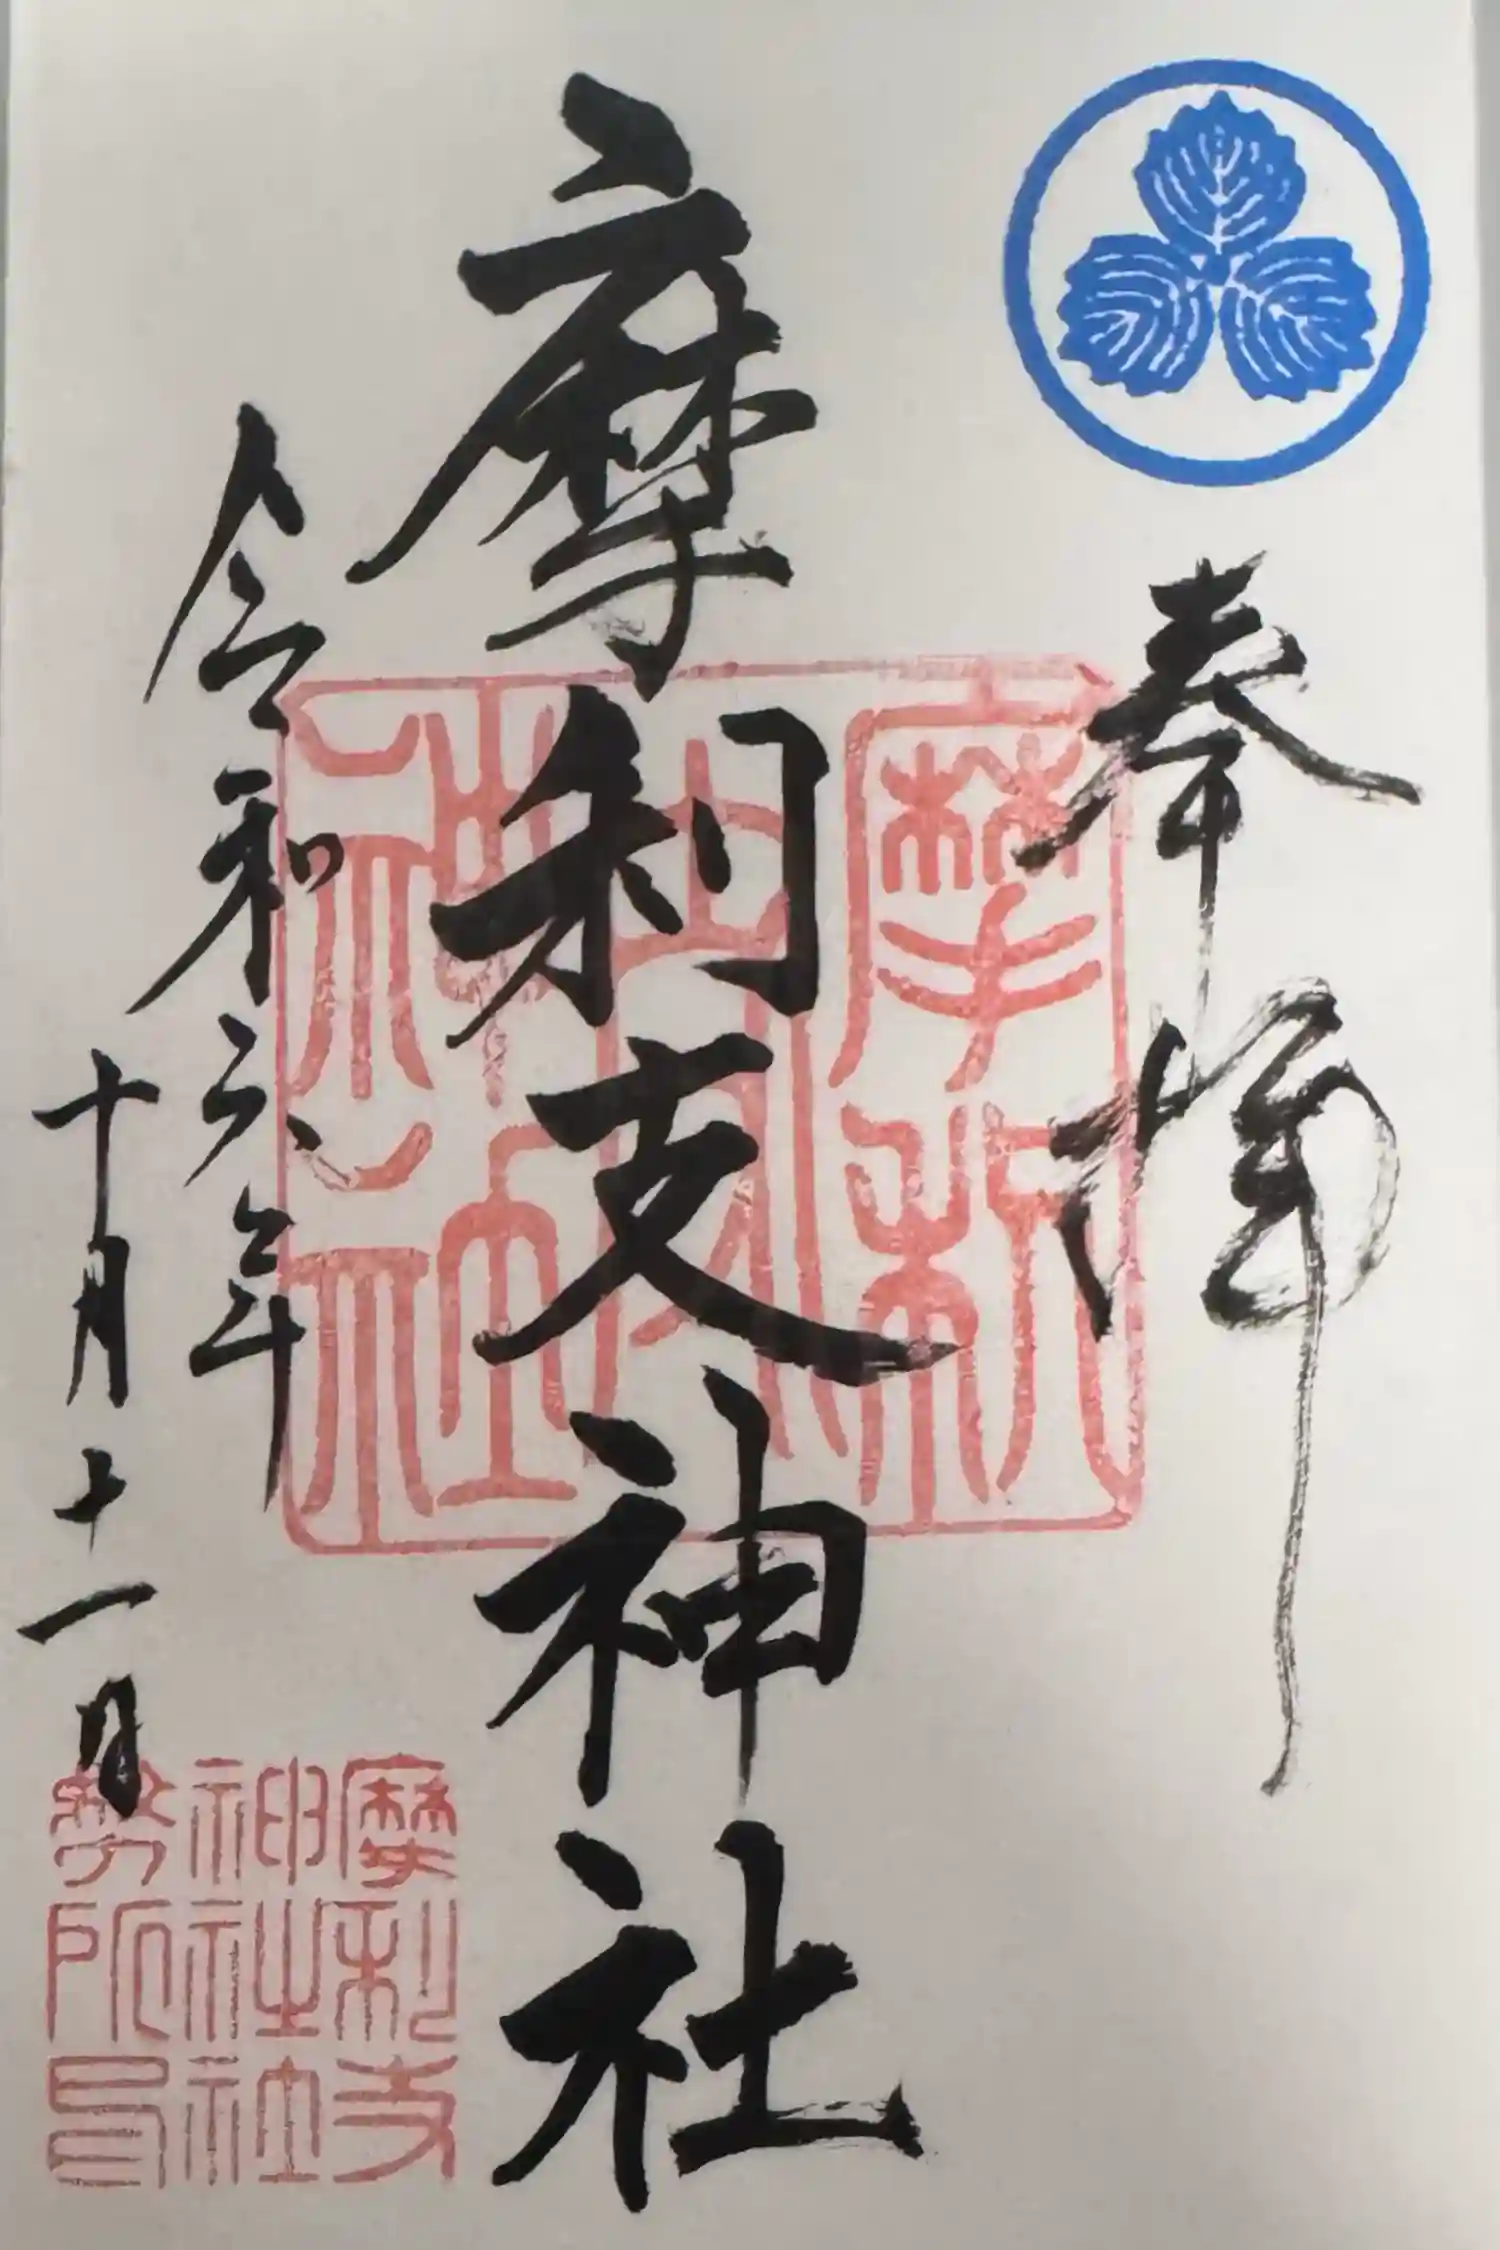 奉拝
摩利支神社
摩利支神社
令和六年
十月十一日
摩利支
神社社
務所印